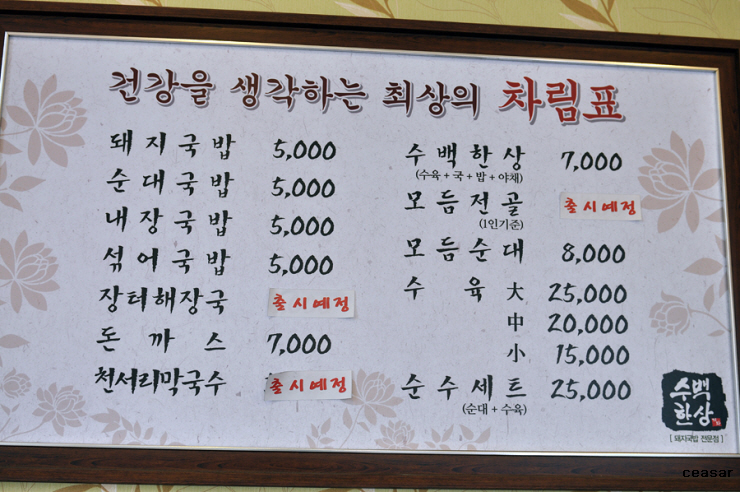 건강을 생각하는 최상의 차림표
돼지국밥 5,000
순대국밥 5,000
내장국밥 5,000
섞어국밥 5,000
장터해장국 출시예정
돈까스 7,000
천서리막국수 출시예정
수백한상 7,000
(수육+국+밥+야채)
모듬전골 출시예정
(1인기준)
모듬순대 8,000
수육 大 25,000
中 20,000
小 15,000
순수세트 25,000
(순대+수육)
수백
한상
[돼지국밥 전문점]
ceasar